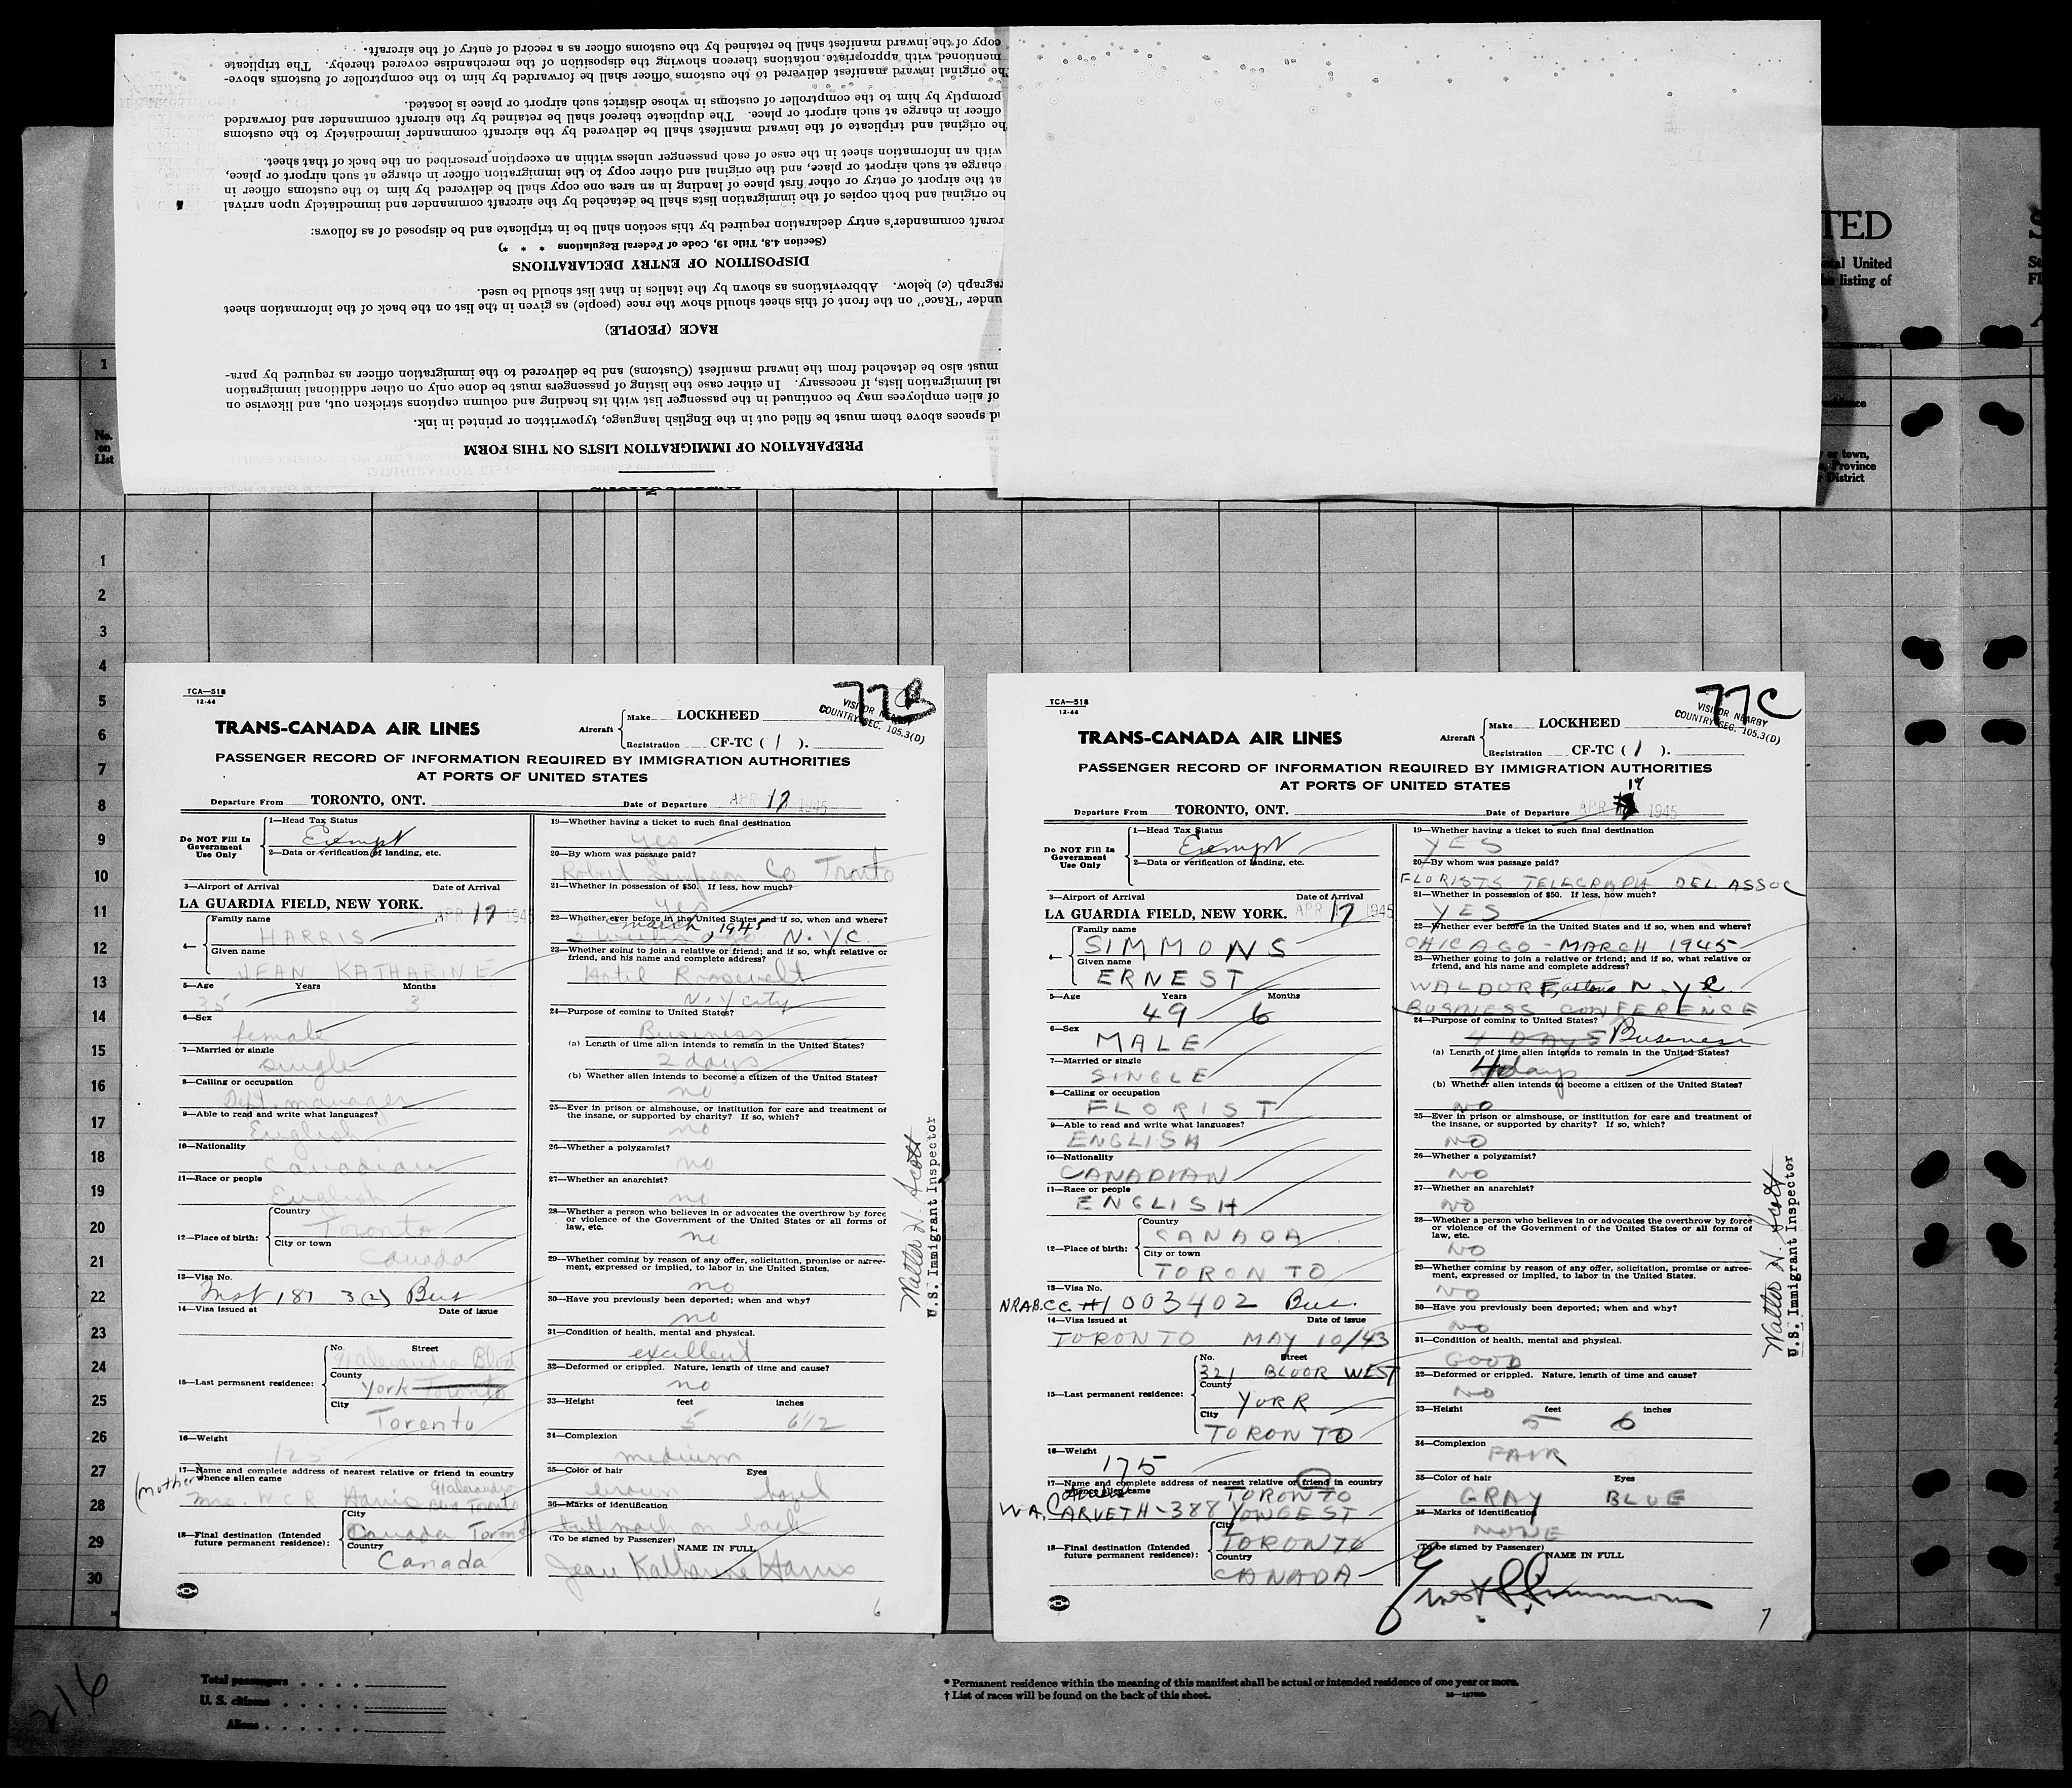 copy of the inward manifest shall be retained by the customs officer as a record of entry of the aircraft.
mentioned with appropriate notations thereon showing the disposition of the merchandise covered thereby. The triplicate
he original inward manifest delivered to the customs officer shall be forwarded by him to the comptroller of customs above-
promptly by him to the comptroller of customs in whose district such airport or place is located.
officer in charge at such airport or place. The duplicate thereof shall be retained by the aircraft commander and forwarded
he original and triplicate of the inward manifest shall be delivered by the aircraft commander immediately to the customs
with an information sheet in the case of each passenger unless within an exception prescribed on the back of that sheet.
charge at such airport or place, and the original and other copy to the immigration officer in charge at such airport or place,
at the airport of entry or other first place of landing in an area one copy shall be delivered by him to the customs officer in
he original and both copies of the immigration lists shall be detached by the aircraft commander and immediately upon arrival
rcraft commander's entry declaration required by this section shall be in triplicate and be disposed of as follows:
(Section 4.8, Title 19, Code of Federal Regulations * * *)
DISPOSITION OF ENTRY DECLARATIONS
ragraph (c) below. Abbreviations as shown by the italics in that list should be used.
under "Race" on the front of this sheet should show the race (people) as given in the list on the back of the information sheet
RACE (PEOPLE)
must also be detached from the inward manifest (Customs) and be delivered to the immigration officer as required by para-
nal immigration lists, if necessary. In either case the listing of passengers must be done only on other additional immigration
of alien employees may be continued in the passenger list with its heading and column captions stricken out, and likewise on
nd spaces above them must be filled out in the English language, typewritten or printed in ink.
PREPARATION OF IMMIGRATION LISTS ON THIS FORM
TED
tal United
he listing of
or town,
Province
District
1
No.
on
List
1
2
3
4
5
6
7
8
9
10
11
12
13
14
15
16
17
18
19
20
21
22
23
24
25
26
27
28
29
30
TCA—518
12-44
77B
VISITOR NEARBY
COUNTRY SEC. 105.3(D)
TRANS-CANADA AIR LINES
Aircraft
Make LOCKHEED
Registration CF-TC ( 1 ).
PASSENGER RECORD OF INFORMATION REQUIRED BY IMMIGRATION AUTHORITIES
AT PORTS OF UNITED STATES
Departure From TORONTO, ONT. Date of Departure APR 17 1945
Do NOT Fill In
Government
Use Only
1—Head Tax Status
Exempt
2—Data or verification of landing, etc.
3—Airport of Arrival Date of Arrival
LA GUARDIA FIELD, NEW YORK. APR 17 1945
4—
Family name
HARRIS
Given name
JEAN KATHARINE
5—Age Years Months
35 3
6—Sex
female
7—Married or single
single
8—Calling or occupation
Dept. manager
9—Able to read and write what languages?
English
10—Nationality
Canadian
11—Race or people
English
12—Place of birth:
Country
Toronto
City or town
Canada
13—Visa No.
Inst 187 3(2) Bus
14—Visa issued at Date of issue
15—Last permanent residence:
No. Street
91 Alexandra Blvd
County
York Toronto
City
Toronto
16—Weight
125
17—Name and complete address of nearest relative or friend in country
whence alien came
(mother)
Mrs. W C R Harris 91 Alexandra Blvd Toronto
18—Final destination (Intended
future permanent residence):
City
Canada Toronto
Country
Canada
19—Whether having a ticket to such final destination
yes
20—By whom was passage paid?
Robert Simpson Co Tronto
21—Whether in possession of $50. If less, how much?
yes
22—Whether ever before in the United States and if so, when and where?
March, 1945 N.Y.C.
23—Whether going to join a relative or friend; and if so, what relative or
friend, and his name and complete address?
Hotel Roosevelt
N.Y city
24—Purpose of coming to United States?
Business
(a) Length of time alien intends to remain in the United States?
2 days
(b) Whether alien intends to become a citizen of the United States?
no
25—Ever in prison or almshouse, or institution for care and treatment of
the insane, or supported by charity? If so, which?
no
26—Whether a polygamist?
no
27—Whether an anarchist?
no
28—Whether a person who believes in or advocates the overthrow by force
or violence of the Government of the United States or all forms of
law, etc.
no
29—Whether coming by reason of any offer, solicitation, promise or agree-
ment, expressed or implied, to labor in the United States.
no
30—Have you previously been deported; when and why?
no
31—Condition of health, mental and physical.
excellent
32—Deformed or crippled. Nature, length of time and cause?
no
33—Height feet inches
5 6 1/2
34—Complexion
medium
35—Color of hair Eyes
brown hazel
36—Marks of identification
birthmark on back
(To be signed by Passenger) NAME IN FULL
Jean Katharine Harris
6
Walter N. Scott
U.S. Immigrant Inspector
TCA—518
12-44
77C
VISITOR NEARBY
COUNTRY SEC. 105.3(D)
TRANS-CANADA AIR LINES
Aircraft
Make LOCKHEED
Registration CF-TC ( 1 ).
PASSENGER RECORD OF INFORMATION REQUIRED BY IMMIGRATION AUTHORITIES
AT PORTS OF UNITED STATES
Departure From TORONTO, ONT. Date of Departure APR 17 1945
Do NOT Fill In
Government
Use Only
1—Head Tax Status
Exempt
2—Data or verification of landing, etc.
3—Airport of Arrival Date of Arrival
LA GUARDIA FIELD, NEW YORK. APR 17 1945
4—
Family name
SIMMONS
Given name
ERNEST
5—Age Years Months
49 6
6—Sex
MALE
7—Married or single
SINGLE
8—Calling or occupation
FLORIST
9—Able to read and write what languages?
ENGLISH
10—Nationality
CANADIAN
11—Race or people
ENGLISH
12—Place of birth:
Country
CANADA
City or town
TORONTO
13—Visa No.
NRAB.CC #1003402 Bus.
14—Visa issued at Date of issue
TORONTO MAY 10/43
15—Last permanent residence:
No. Street
321 BLOOR WEST
County
YORK
City
TORONTO
16—Weight
175
17—Name and complete address of nearest relative or friend in country
whence alien came
TORONTO
W.A. CARVETH - 388 YONGE ST
18—Final destination (Intended
future permanent residence):
City
TORONTO
Country
CANADA
19—Whether having a ticket to such final destination
YES
20—By whom was passage paid?
FLORISTS TELEGRAPH DEL ASSOC
21—Whether in possession of $50. If less, how much?
YES
22—Whether ever before in the United States and if so, when and where?
CHICAGO - MARCH 1945
23—Whether going to join a relative or friend; and if so, what relative or
friend, and his name and complete address?
WALDORF Astoria N.Y.C.
BUSINESS CONFERENCE
24—Purpose of coming to United States?
4 DAYS Business
(a) Length of time alien intends to remain in the United States?
4 days
(b) Whether alien intends to become a citizen of the United States?
NO
25—Ever in prison or almshouse, or institution for care and treatment of
the insane, or supported by charity? If so, which?
NO
26—Whether a polygamist?
NO
27—Whether an anarchist?
NO
28—Whether a person who believes in or advocates the overthrow by force
or violence of the Government of the United States or all forms of
law, etc.
NO
29—Whether coming by reason of any offer, solicitation, promise or agree-
ment, expressed or implied, to labor in the United States.
NO
30—Have you previously been deported; when and why?
NO
31—Condition of health, mental and physical.
GOOD
32—Deformed or crippled. Nature, length of time and cause?
NO
33—Height feet inches
5 6
34—Complexion
FAIR
35—Color of hair Eyes
GRAY BLUE
36—Marks of identification
NONE
(To be signed by Passenger) NAME IN FULL
Ernest Simmons
7
Walter N. Scott
U.S. Immigrant Inspector
216
Total passengers
U. S. citizens
Aliens
* Permanent residence within the meaning of this manifest shall be actual or intended residence of one year or more.
† List of races will be found on the back of this sheet.